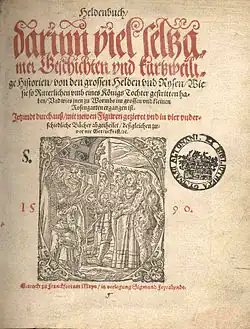 Heldenbuch/
darinn viel seltza-
mer Geschichten vnd kurtzweili-
ge Historien/ von den grossen Helden vnd Rysen/ Wie
sie so Ritterlichen vmb eines Königs Tochter gestritten ha-
ben/ Vnd wie inen zu Wormbs im grossen vnd kleinen
Rosengarten ergangen ist.
Jetzundt durchauß/ mit newen Figuren gezieret vnd in vier vnder-
schiedliche Bücher abgetheilet/ desgleichen zu-
vor nie Getruckt ist.
S.
15 90.
Getruckt zu Franckfort am Mayn/ in verlegung Sigmund Feyrabends.